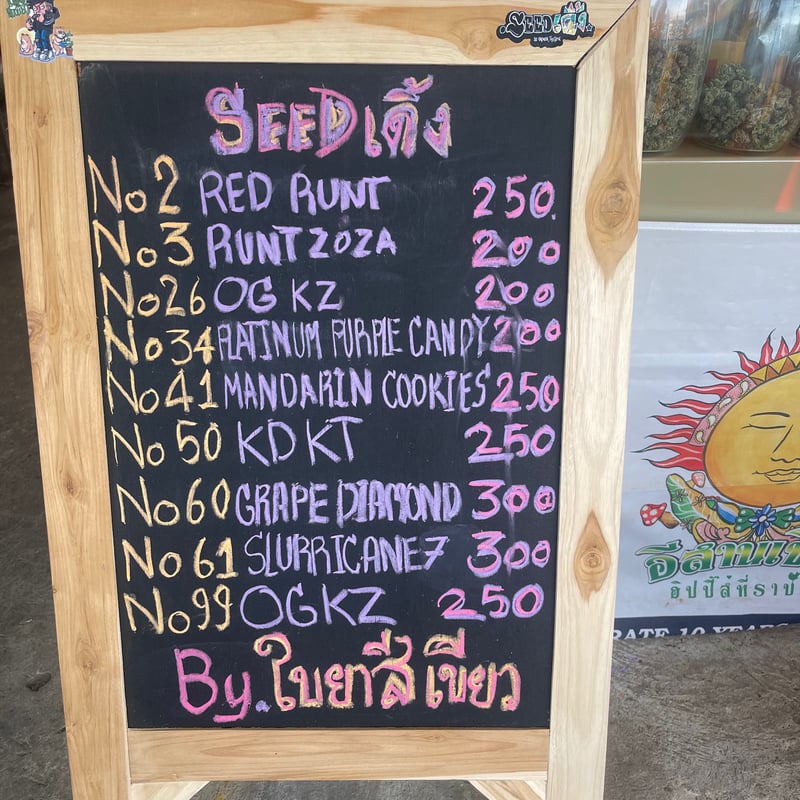 SEEDเดิ้ง
SEEDเดิ้ง
No2 RED RUNT 250
No3 RUNTZOZA 200
No26 OG KZ 200
No34 PLATINUM PURPLE CANDY 200
No41 MANDARIN COOKIES 250
No50 KDKT 250
No60 GRAPE DIAMOND 300
No61 SLURRICANE7 300
No99 OGKZ 250
By. ใบยาสีเขียว
อีสานเ
ฮิปปี้ส์ที่ราบ
RATE 10 YEARS